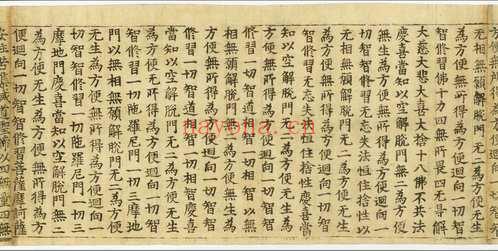 无相無願解脫門无二為方便无生
為方便無所得為方便迴向一切智
智修習佛十力四無所畏四无㝵解
大慈大悲大喜大捨十八佛不共法
慶喜當知以空解脫門无二為方便
无生為方便無所得為方便迴向一
切智智修習無忘失法恒住捨性以
无相無願解脫門無二為方便无生
為方便無所得為方便迴向一切智
智修習无忘失法恒住捨性慶喜當
知以空解脫門无二為方便无生為
方便無所得為方便迴向一切智智
修習一切智道相智一切相智以无
相無願解脫門无二為方便無生為
方便無所得為方便迴向一切智智
修習一切智道相智一切相智慶喜
當知以空解脫門無二為方便無生
為方便无所得為方便迴向一切智
智修習一切陁羅尼門一切三摩地
門以無相無願解脫門无二為方便
无生為方便無所得為方便迴向一
切智智修習一切陁羅尼門一切三
摩地門慶喜當知以空解脫門無二
為方便无生為方便無所得為方
便迴向一切智智修習菩薩摩訶薩
nayona.cn